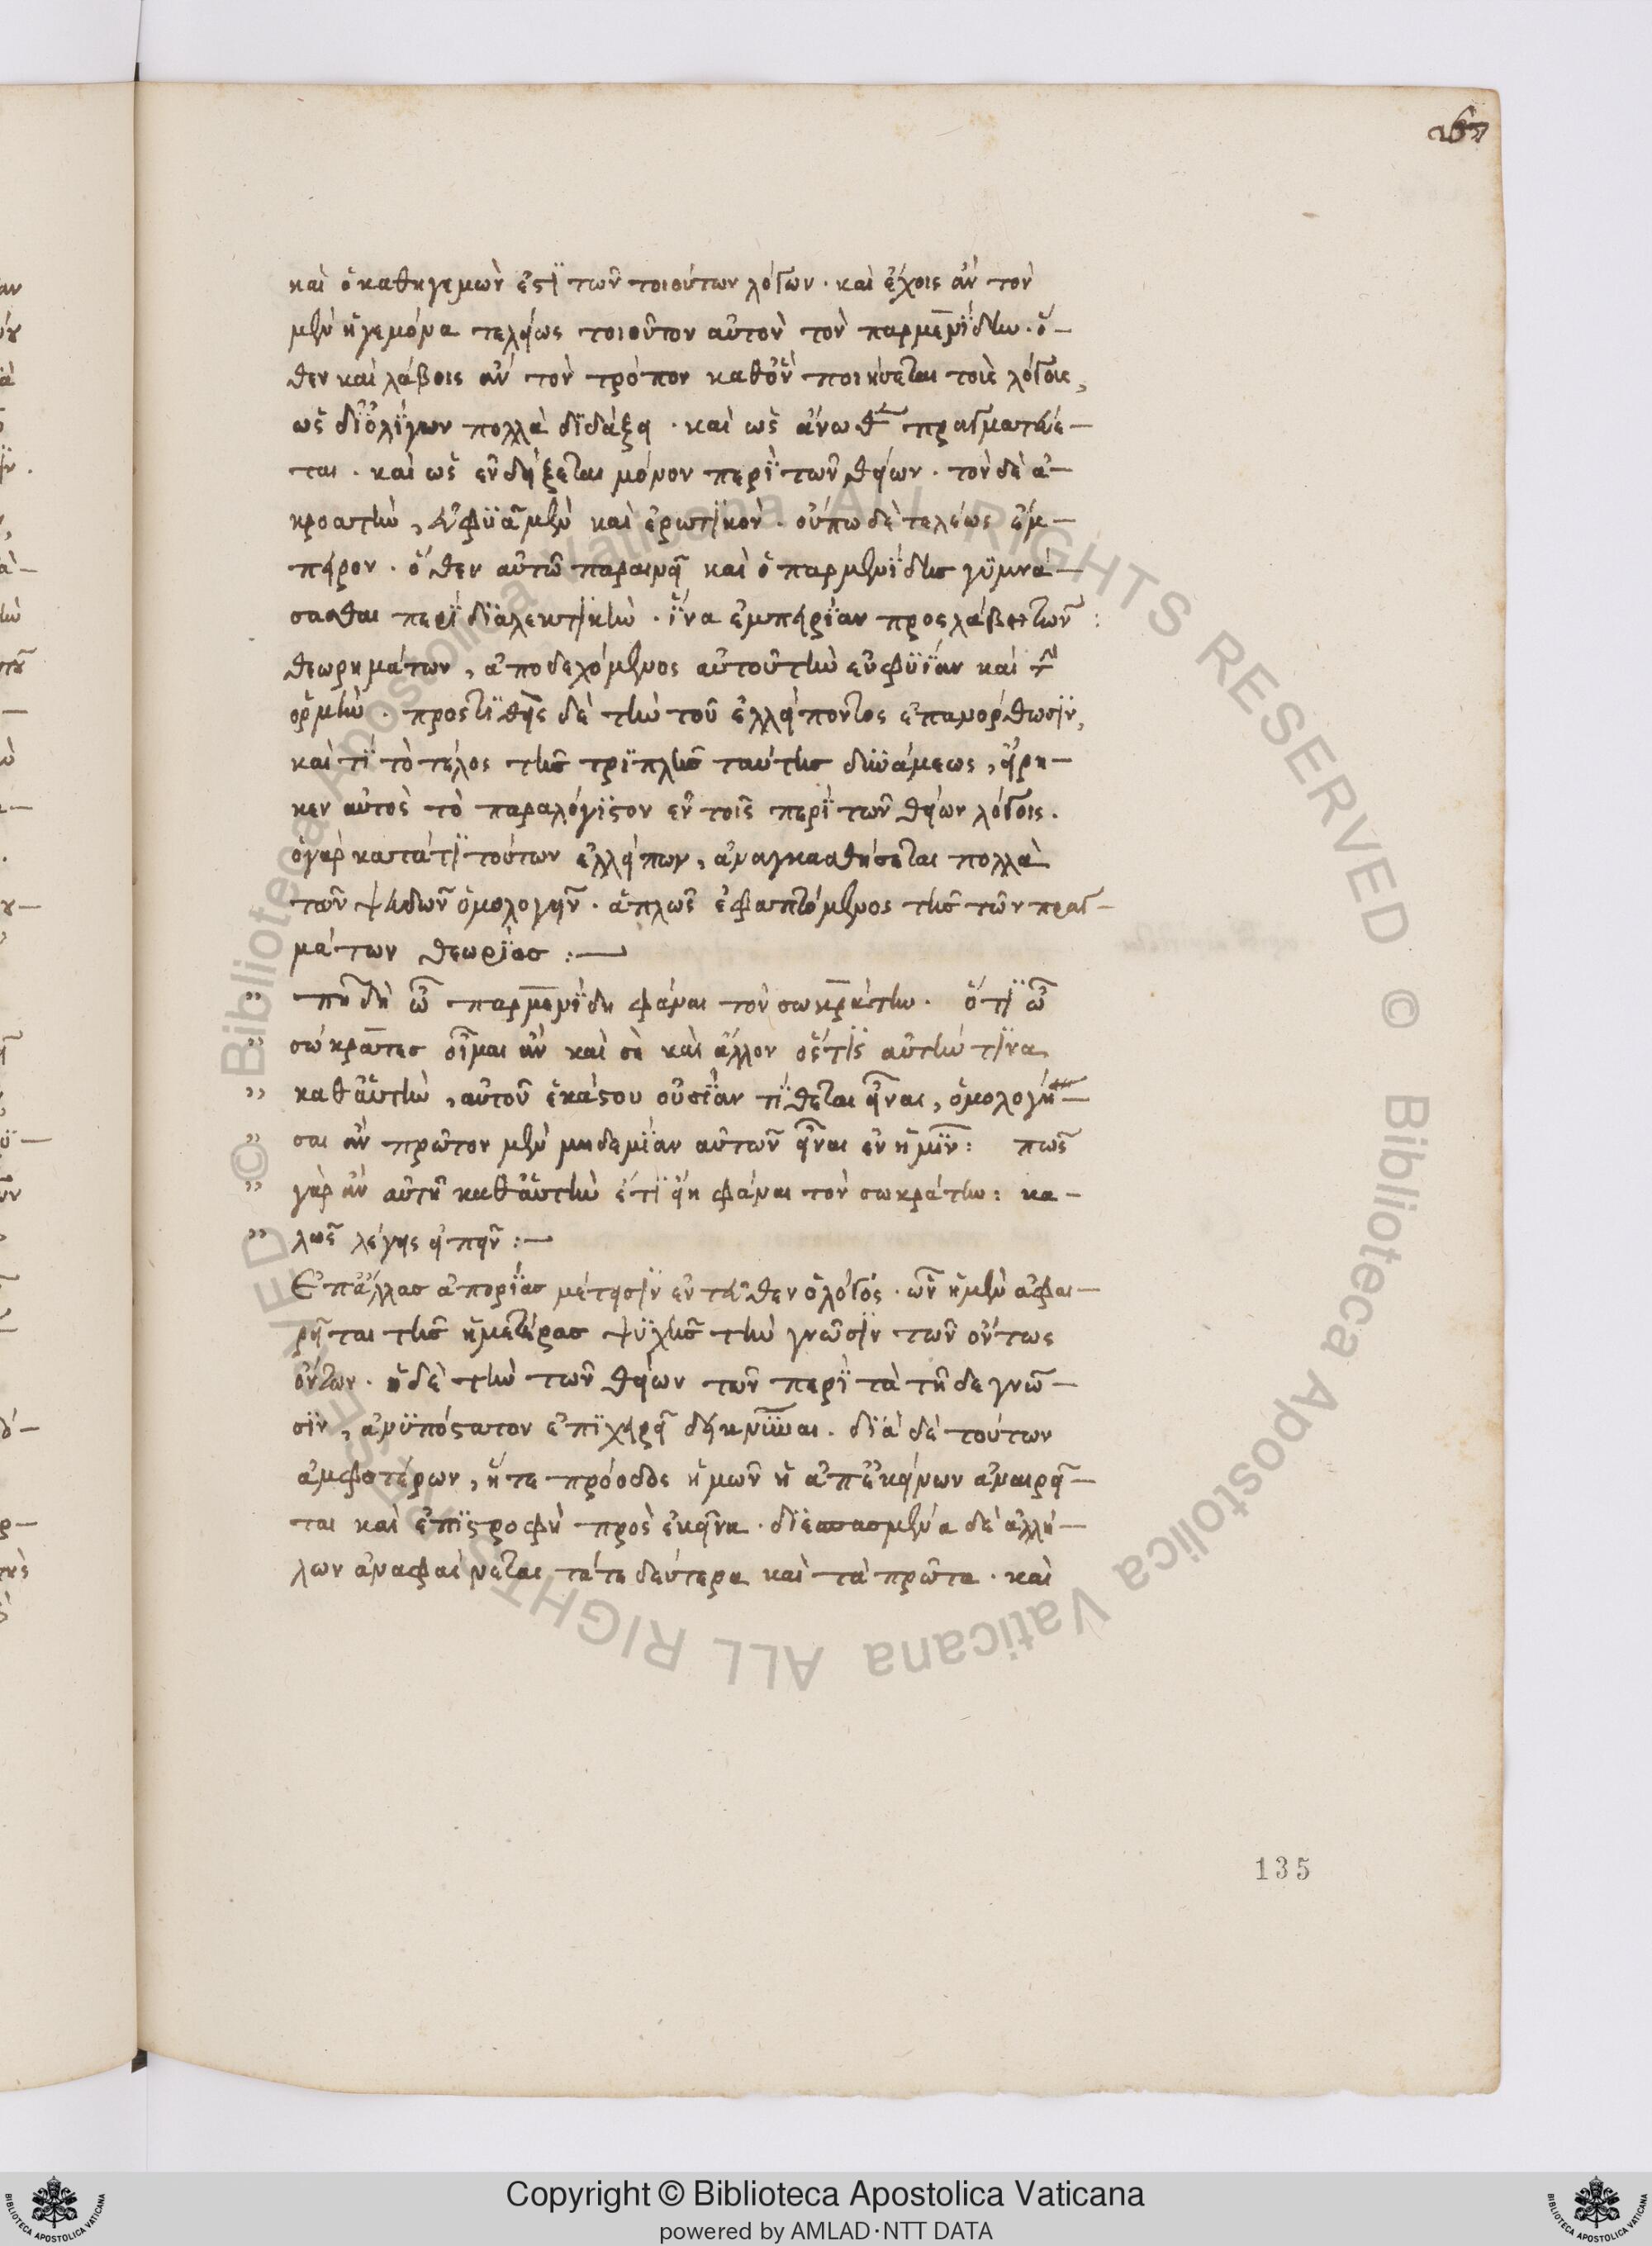 267
καὶ ὁ καθηγεμὼν ἐστὶ τῶν τοιούτων λόγων · καὶ ἔχοις ἂν τὸν
μὲν ἡγεμόνα τελείως τοιοῦτον αὐτὸν τὸν παρμενίδην · ὅ-
θεν καὶ λάβοις ἂν τὸν τρόπον καθ' ὃν ποιήσεται τοὺς λόγους,
ὡς δι' ὀλίγων πολλὰ διδάξει · καὶ ὡς ἄνωθεν πραγματεύε-
ται · καὶ ὡς ἐνδείξεται μόνον περὶ τῶν θείων · τὸν δὲ ἀ-
κροατὴν, εὐφυᾶ μὲν καὶ ἐρωτικὸν · οὔπω δὲ τελέως ἔμ-
πειρον · ὅθεν αὐτῶ παραινεῖ καὶ ὁ παρμενίδης γυμνά-
σασθαι περὶ διαλεκτικὴν · ἵνα ἐμπειρίαν προσλάβη τῶν
θεωρημάτων, ἀποδεχόμενος αὐτοῦ τὴν εὐφυΐαν καὶ τὴν
ὁρμὴν · προστιθεὶς δὲ τὴν τοῦ ἐλλείποντος ἐπανόρθωσιν,
καὶ τί τὸ τέλος τῆς τριπλῆς ταύτης δυνάμεως, εἴρη-
κεν αὐτὸς τὸ παραλόγιστον ἐν τοῖς περὶ τῶν θείων λόγοις.
ὁ γὰρ κατά τι τούτων ἐλλείπων, ἀναγκασθήσεται πολλὰ
τῶν ψευδῶν ὁμολογεῖν · ἁπλῶς ἐφαπτόμενος τῆς τῶν πραγ-
μάτων θεωρίας :—
" πῆ δὴ ὦ παρμενίδη φάναι τὸν σωκράτην · ὅτι ὦ
" σώκρατες οἶμαι ἂν καὶ σὲ καὶ ἄλλον ὅστις αὐτήν τινα
" καθ' αὑτὴν, αὐτοῦ ἑκάστου οὐσίαν τίθεται εἶναι, ὁμολογῆ-
" σαι ἂν πρῶτον μὲν μηδεμίαν αὐτῶν εἶναι ἐν ἡμῖν : πῶς
" γὰρ ἂν αὐτὴ καθ' αὑτὴν ἔτι εἴη φάναι τὸν σωκράτην : κα-
" λῶς λέγεις εἰπεῖν :—
Ἐπ' ἄλλας ἀπορίας μέτεισιν ἐντεῦθεν ὁ λόγος · ὧν ἡ μὲν ἀφαι-
ρεῖται τῆς ἡμετέρας ψυχῆς τὴν γνῶσιν τῶν ὄντως
ὄντων · ἡ δὲ τὴν τῶν θείων τῶν περὶ τὰ τῆδε γνῶ-
σιν, ἀνυπόστατον ἐπιχειρεῖ δεικνύναι · διὰ δὲ τούτων
ἀμφοτέρων, ἥ τε πρόοδος ἡμῶν ἡ ἀπ' ἐκείνων ἀναιρεῖ-
ται καὶ ἐπιστροφὴ πρὸς ἐκεῖνα · διεσπασμένα δὲ ἀλλή-
λων ἀναφαίνεται τά τε δεύτερα καὶ τὰ πρῶτα · καὶ
135
© Biblioteca Apostolica Vaticana ALL RIGHTS RESERVED © Biblioteca Apostolica Vaticana ALL RIGHTS RESERVED
Copyright © Biblioteca Apostolica Vaticana
powered by AMLAD·NTT DATA